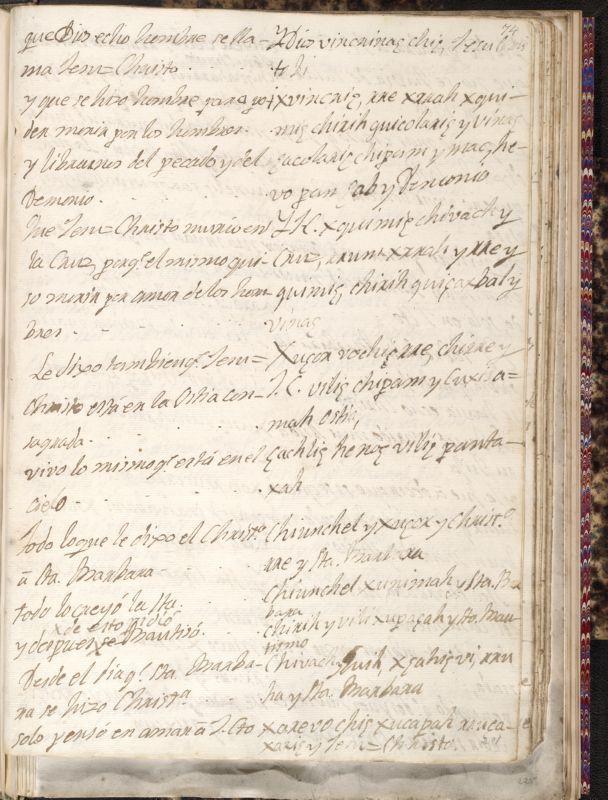 74
que Dios echo hombre se lla=
ma Jesu=Christo.
y que se hizo hombre para po
der morir por los hombres.
y librarnos del pecado y del
Demonio.
Que Jesu=Christo murió en
la Cruz, porq.e el mismo qui
so morir por amor de los hom
bres.
Le dixo tambien q.e Jesu=
Christo está en la Ostia con=
sagrada.
vivo lo mismo q.e está en el
cielo.
todo lo que le dixo el Christ.o
à Sta. Barbara
todo lo creyó la Sta.
y despues de esto se Bautizó.
Desde el dia q.e Sta. Barba=
ra se hizo Christ.a
solo pensó en amar à J. Cto
y Dios vincninaς chiς, Jesu Chris
xvincniς, rre xrrah xqui=
miς chirih quicolariς y vinaς
ςacolariς chipam y mac, he=
vo pan ςab y Demonio
y J.C. xquimiς chivach y
Cruz, rrum xrrah y rre y
quimiς chirih quiςaxbal y
vinaς
Xuςox vochiς rre, chirre y
J. C. viliς chipam y Luxisa=
mah Ostia,
ςachliς henoς viliς panta=
xah
Chiunchel y xuςox y Christ.o
rre y Sta. Barbara
Chiunchel xunimah y Sta. Ba
bara
chirih y vili xupaςah y Sto. Bau
tismo
Chivach ςuih, xςahiς vi, rru
ha y Sta. Barbara
xarevo chiς xucapah rruca=
xariς y Jesu=Christo
225